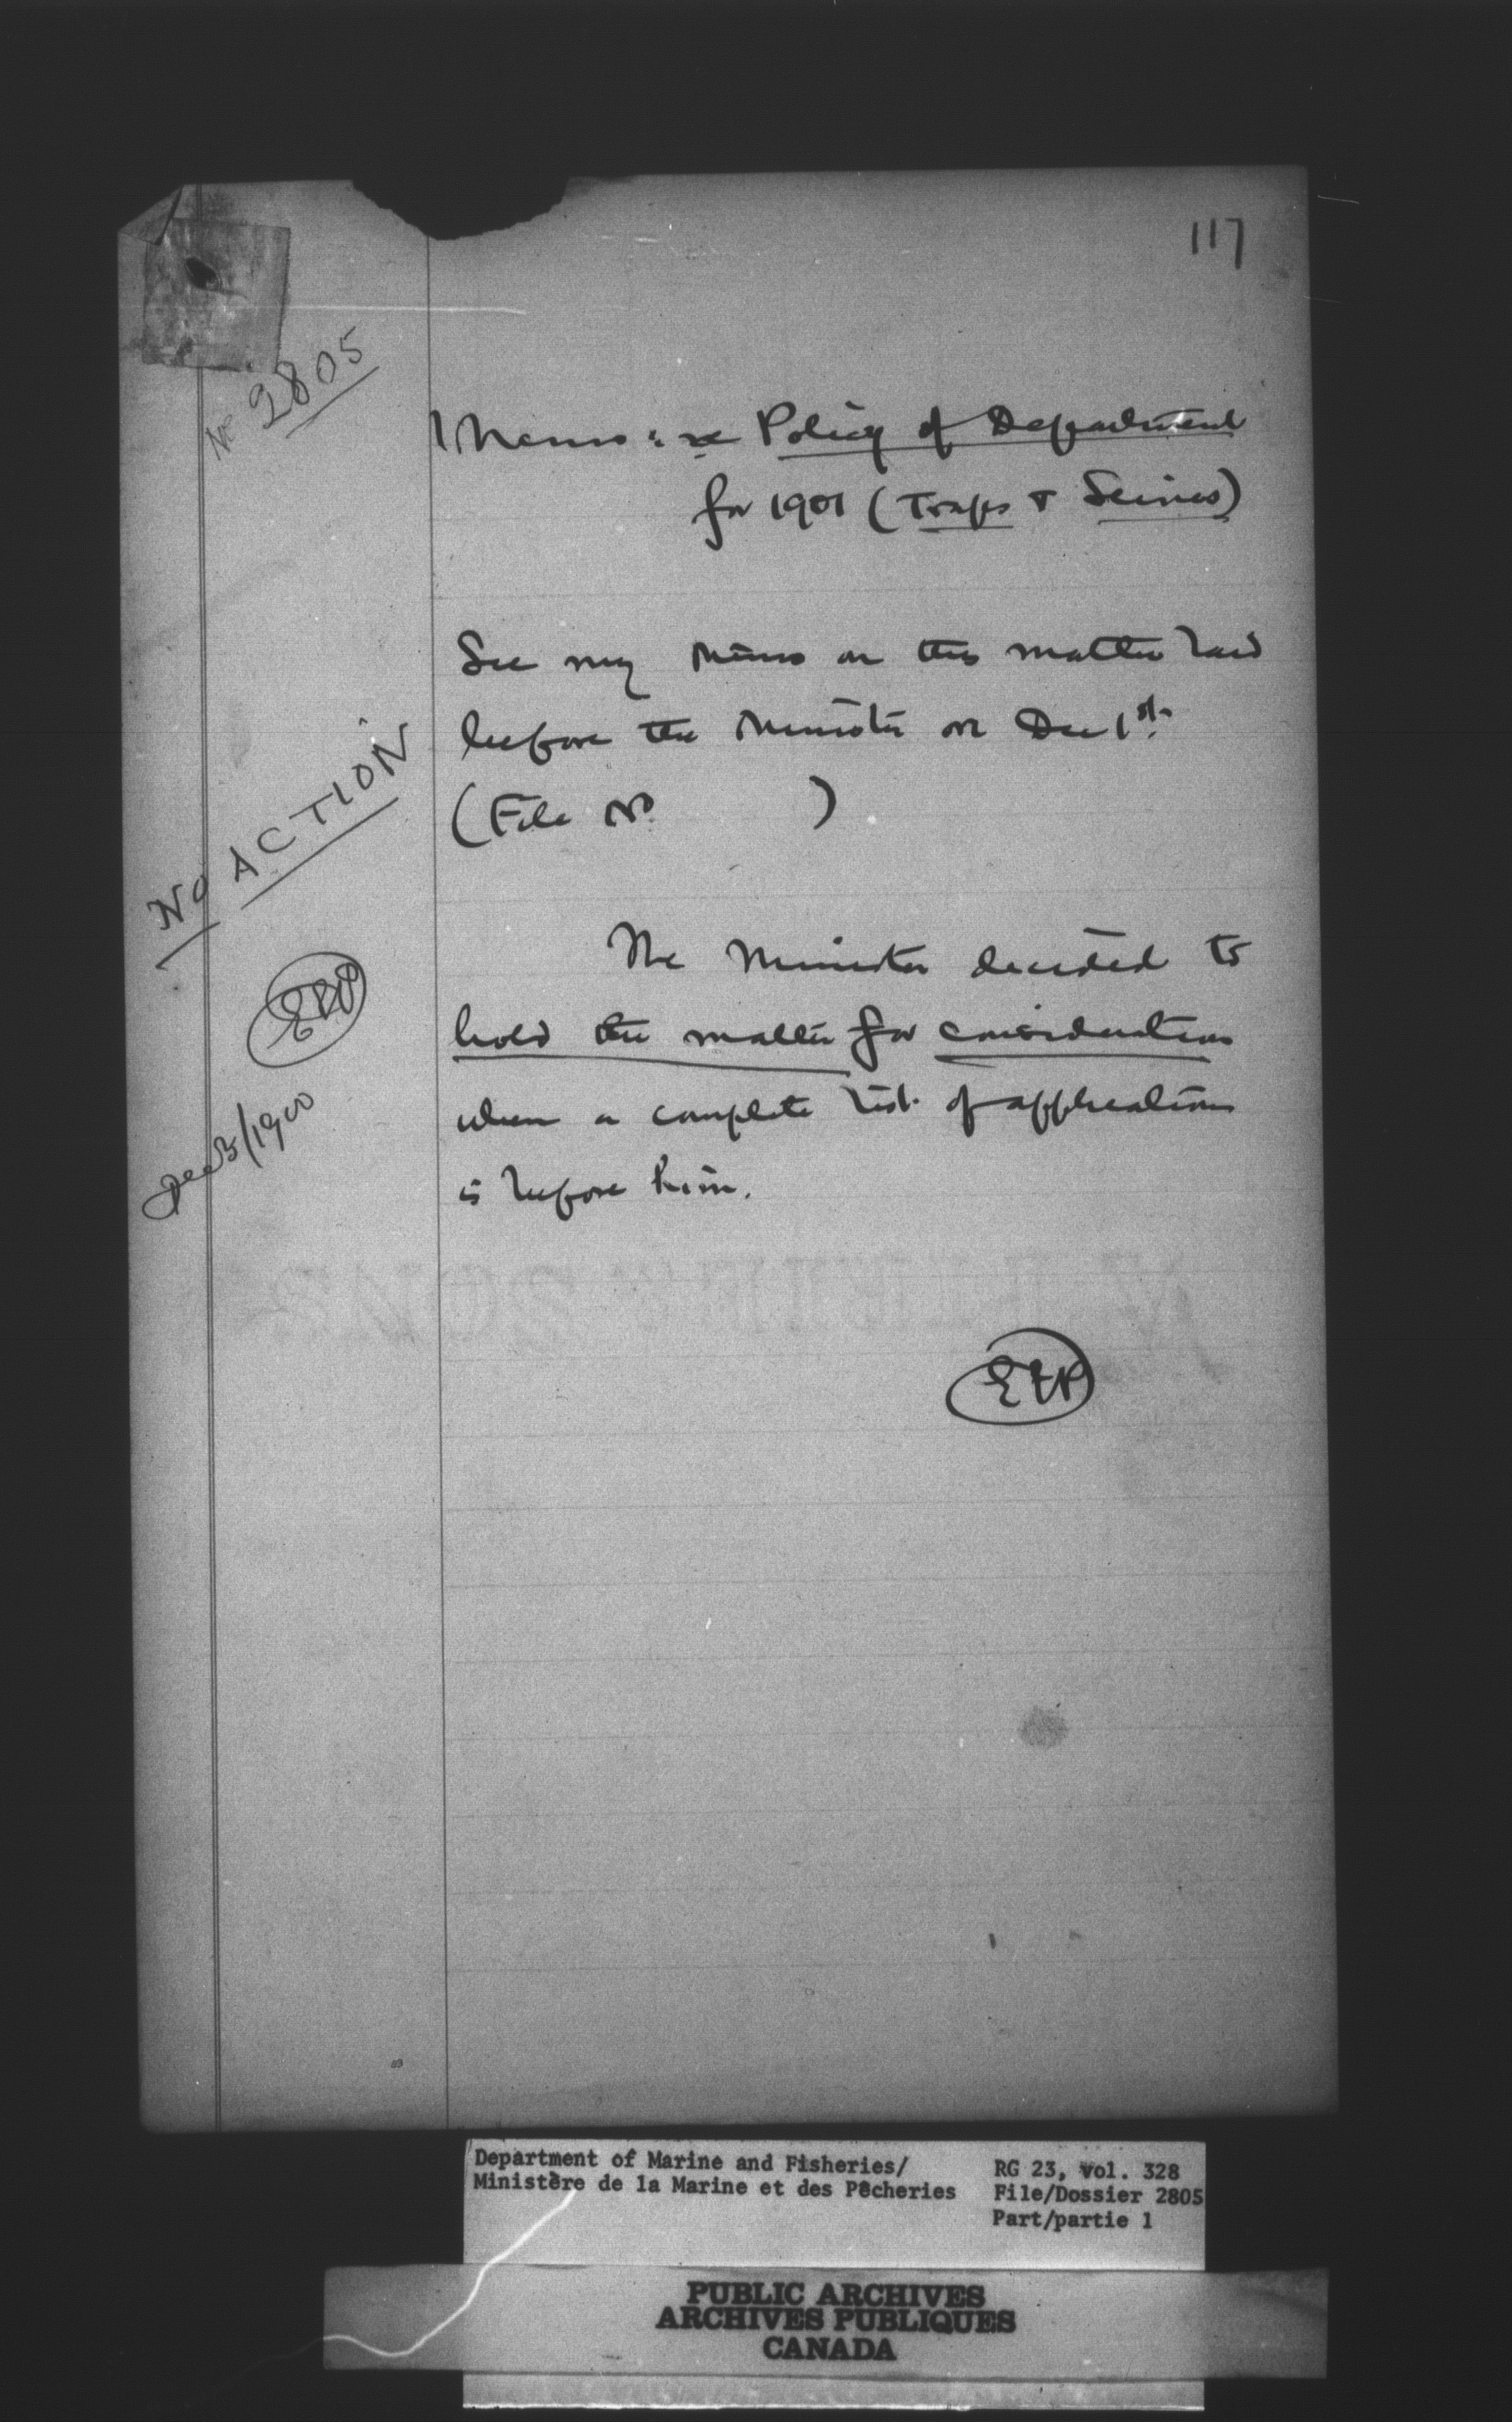 117
No 2805
Memo: re Policy of Department
for 1901 (Traps & Seines)
See my memo on this matter laid
before the Minister on Dec 1st.
(File No. )
NO ACTION
The Minister decided to
hold the matter for consideration
when a complete list of applications
is before him.
EEP
/1900
EEP
Department of Marine and Fisheries/
Ministère de la Marine et des Pêcheries
RG 23, vol. 328
File/Dossier 2805
Part/partie 1
PUBLIC ARCHIVES
ARCHIVES PUBLIQUES
CANADA